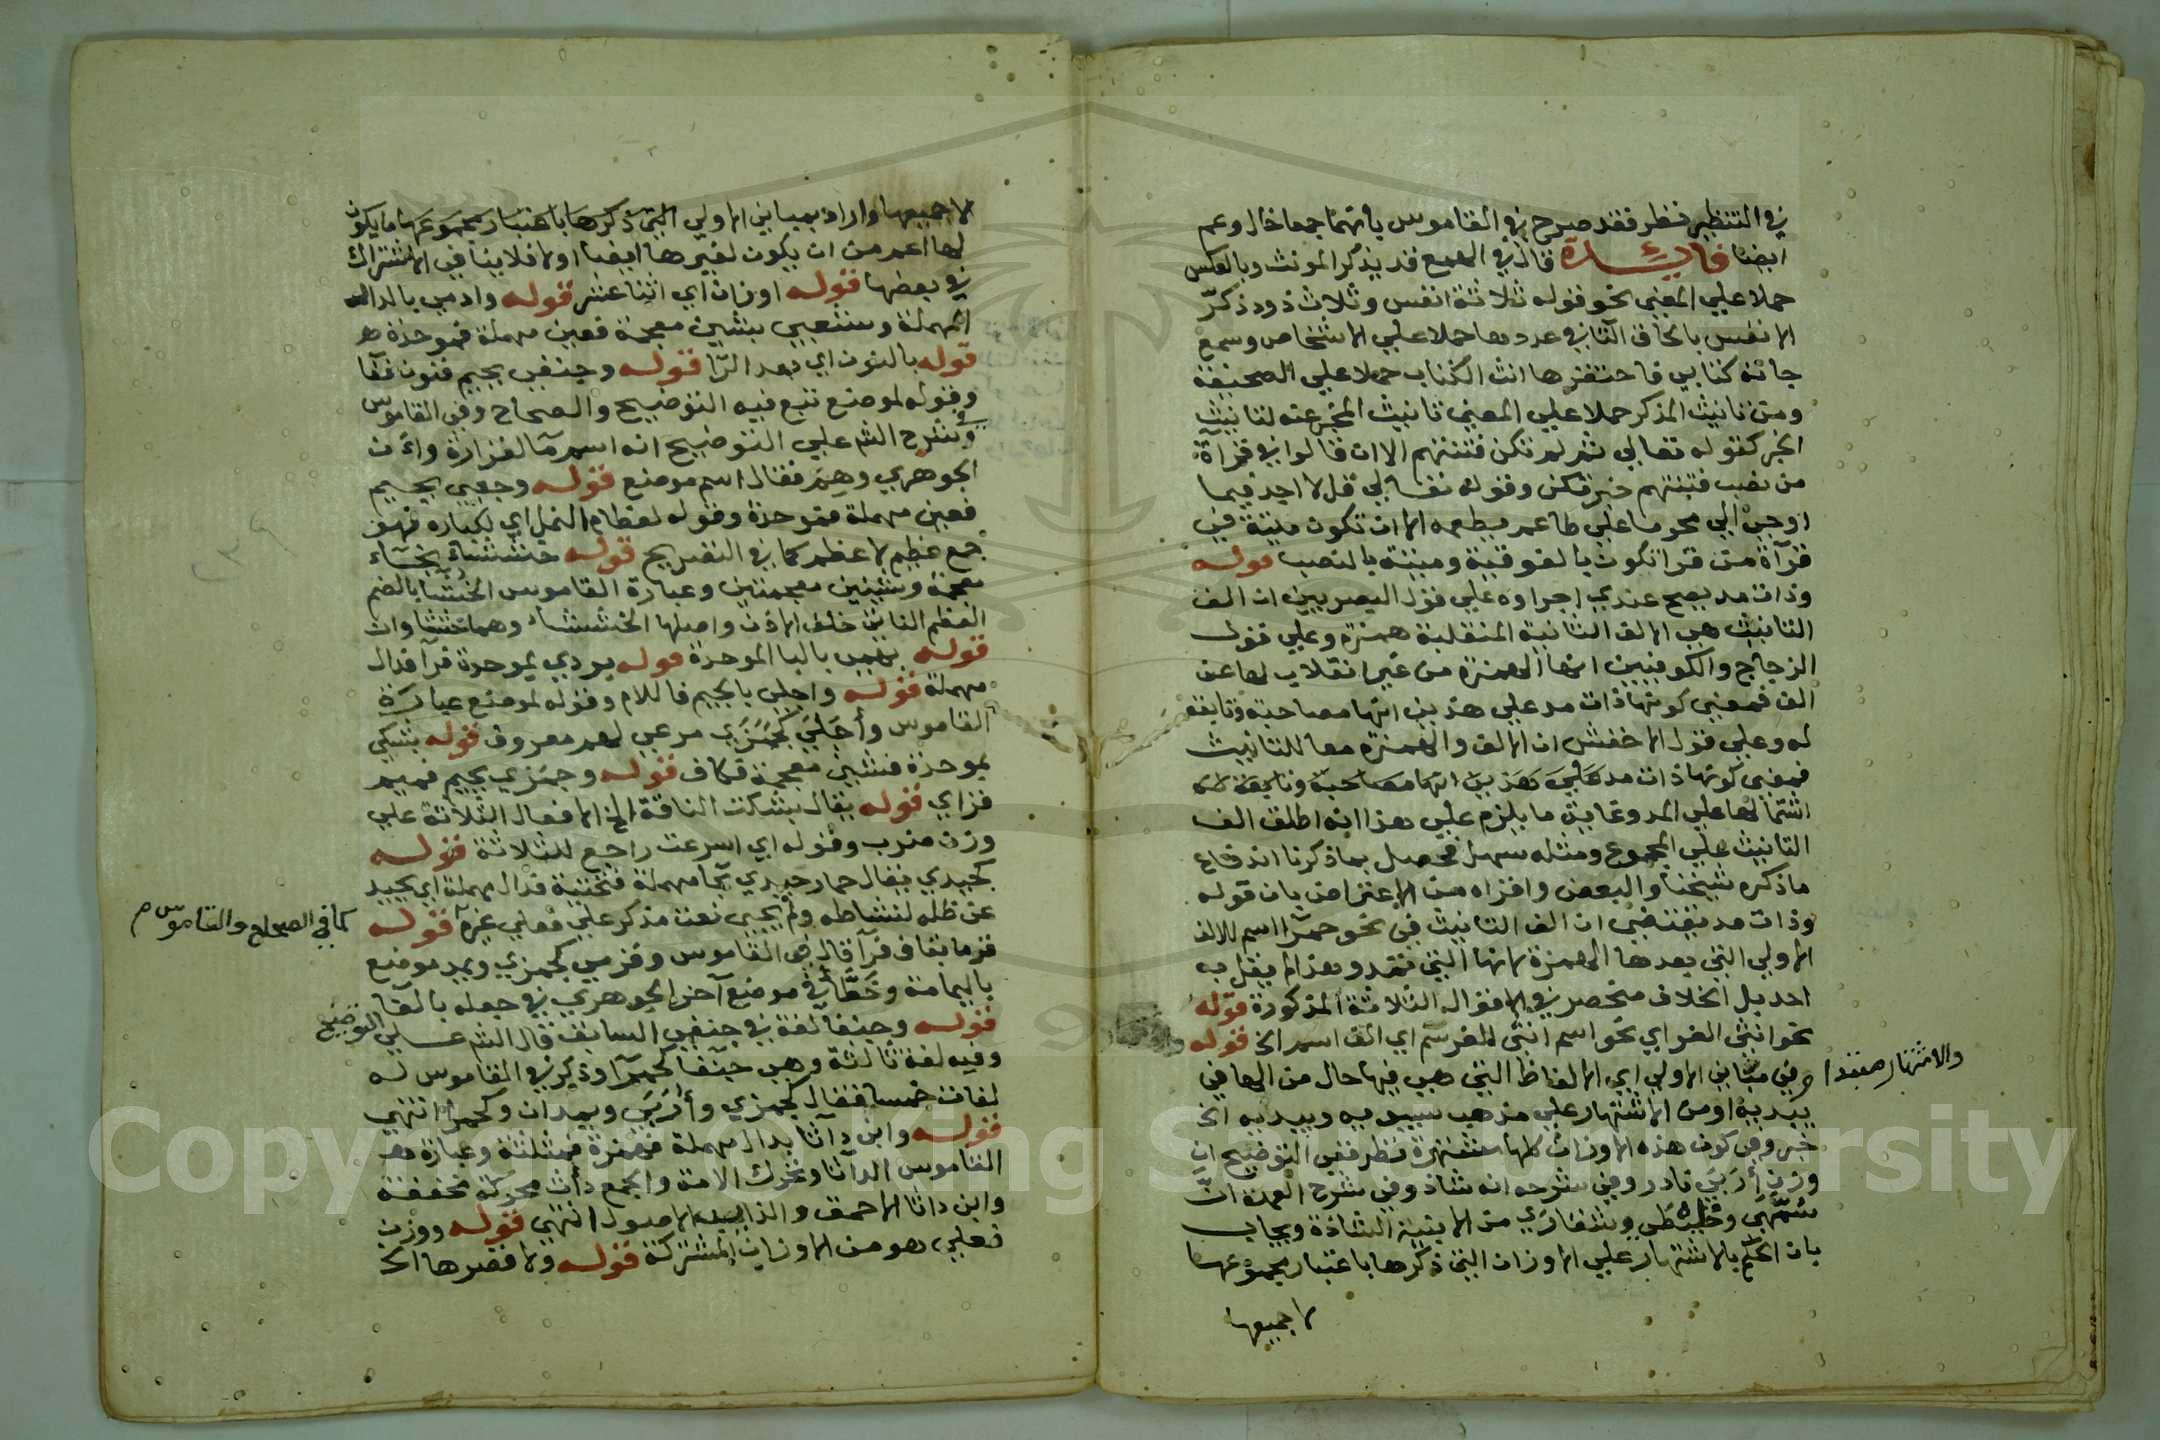 في التنظير نظر فقد صرح في القاموس بانهما جمعا خال وعم
ايضا فائدة قال في الهمع قد يذكر المونث وبالعكس
حملا علي المعني نحو قوله ثلاثة انفس وثلاث ذود ذكر
الانفس بالحاق التا في عددها حملا علي الاشخاص وسمع
جاته كتابي فاحتقرها انث الكتاب حملا علي الصحيفة
ومن تانيث المذكر حملا علي المعني تانيث المخبر عنه لتانيث
الخبر كقوله تعالي ثم لم تكن فتنتهم الا ان قالوا في قرآة
من نصب فتنتهم خبر تكن وقوله تعالي قل لا اجد فيما
اوحي الي محرما علي طاعم يطعمه الا ان تكون ميتة في
قرآة من قرا تكون بالفوقية وميتة بالنصب قوله
وذات مد يصح عندي اجراوه علي قول البصريين ان الف
التانيث هي الالف الثانية المنقلبة همزة وعلي قول
الزجاج والكوفيين انها الهمزة من غير انقلاب لها عن
الف فمعني كونها ذات مد علي هذين انها مصاحبة وتابعة
له وعلي قول الاخفش ان الالف والهمزة معا للتانيث
فمعني كونها ذات مد علي هذين انها مصاحبة وتابعة له
اشتمالها علي المد وغاية ما يلزم علي هذا انه اطلق الف
التانيث علي المجموع ومثله سهل فحصل بما ذكرنا اندفاع
ما ذكره شيخنا والبعض واقراه من الاعتراض بان قوله
وذات مد يقتضي ان الف التانيث في نحو حمرا اسم للالف
الاولي التي بعدها الهمزة لانها التي تمد وهذا لم يقل به
احد بل الخلاف منحصر في الاقوال الثلاثة المذكورة قوله
نحو انثي الغر اي نحو اسم انثي الغر ثم اي الف اسم الخ قوله
في مباني الاولي اي الالفاظ التي هي فيها حال من الها في
والاشتهار مبتدا
يبديه او من الاشتهار علي مذهب سيبويه ويبديه الخ
خبر وفي كون هذه الاوزان كلها مشتهرة نظر ففي التوضيح ان
وزن أربي نادر وفي شرحه انه شاذ وفي شرح العمدة ان
سمهي وخليطي وشقاري من الابنية الشاذة ويجاب
بان الحكم بالاشتهار علي الاوزان التي ذكرها باعتبار مجموعها
لا جميعها
لا جميعها واراد بمباني الاولي التي ذكرها باعتبار مجموعها ما يكون
لها اعم من ان يكون لغيرها ايضا اولا فلا ينافي الاشتراك
في بعضها قوله اوزان اي اثنا عشر قوله وادمي بالدال
المهملة وشعبي بشين معجمة فعين مهملة فموحدة
قوله بالنون اي بعد الرا قوله وجنفي بجيم فنون ففا
وقوله لموضع تبع فيه التوضيح والصحاح وفي القاموس
وفي شرح الش علي التوضيح انه اسم مآ لفزارة وان
الجوهري وهم فقال اسم موضع قوله وجعبي بجيم
فعين مهملة فموحدة وقوله لعظام النمل اي لكباره فهو
جمع عظيم لا عظم كما في التصريح قوله خششاء بخاء
معجمة وشينين معجمتين وعبارة القاموس الخشا بالضم
العظم الناتئ خلف الاذن واصلها الخششاء وهما خششاوان
قوله بهمي بالبا الموحدة قوله بردي بموحدة فرا فدال
مهملة قوله واجلي بالجيم فاللام وقوله لموضع عبارة
القاموس وأجلي كجمزي مرعي لهم معروف قوله بشكي
بموحدة فشين معجمة فكاف قوله وجمزي بجيم فميم
فزاي قوله يقال بشكت الناقة الخ الافعال الثلاثة علي
وزن ضرب وقوله اي اسرعت راجع للثلاثة قوله
كحيدي يقال حمار حيدي بحا مهملة فتحتية فدال مهملة اي يحيد
عن ظله لنشاطه ولم يجئ نعت مذكر علي فعلي غيره قوله
كما في الصحاح والقاموس م
فرما بقاف فرآ قال في القاموس وقرمي كجمزي ويمد موضع
باليمامة وخطأ في موضع آخر الجوهري في جعله بالفا
قوله وجنفا لغة في جنفي السابق قال الش علي التوضيح
وفيه لغة ثالثة وهي جنفا كحمرا وذكر في القاموس له
لغات خمسا فقال كجمزي وأربي ويمدان وكحمرا انتهي
قوله وابن دآثا بدال مهملة فهمزة فمثلثة وعبارة
القاموس الدآثا وتحرك الامة والجمع دآث محركة مخففة
وابن داثا الاحمق والدآث الاصول انتهي قوله ووزن
فعلي هو من الاوزان المشتركة قوله ولا قصرها الخ